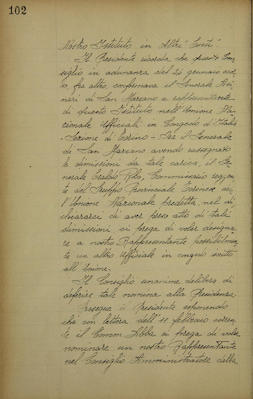 102
Nostro Istituto in altri Enti.
Il Presidente ricorda che questo Con-
siglio in adunanza del 24 gennaio
fra altro, confermava il Generale
nari di San Marzano a rappresentante
di questo Istituto nell'Unione Na-
zionale Ufficiali in Congedo d'Italia
Sezione di Torino - Ora il Generale
di San Marzano avendo rassegnato
le dimissioni da tale carica, il Ge-
nerale Commissario
te del Gruppo Provinciale Torinese del
l'Unione Nazionale predetta, nel di-
chiararci di aver preso atto di tali
dimissioni ci prega di voler designa-
re a nostro Rappresentante possibilmen-
te un altro Ufficiale in congedo iscritto
all'Unione.
Il Consiglio unanime delibera di
deferire tale nomina alla Presidenza.
Prosegue il Presidente esponendo
che con lettera dell' 11 febbraio corren-
te il Comm. ci prega di voler
nominare un nostro Rappresentante
nel Consiglio Amministratore della